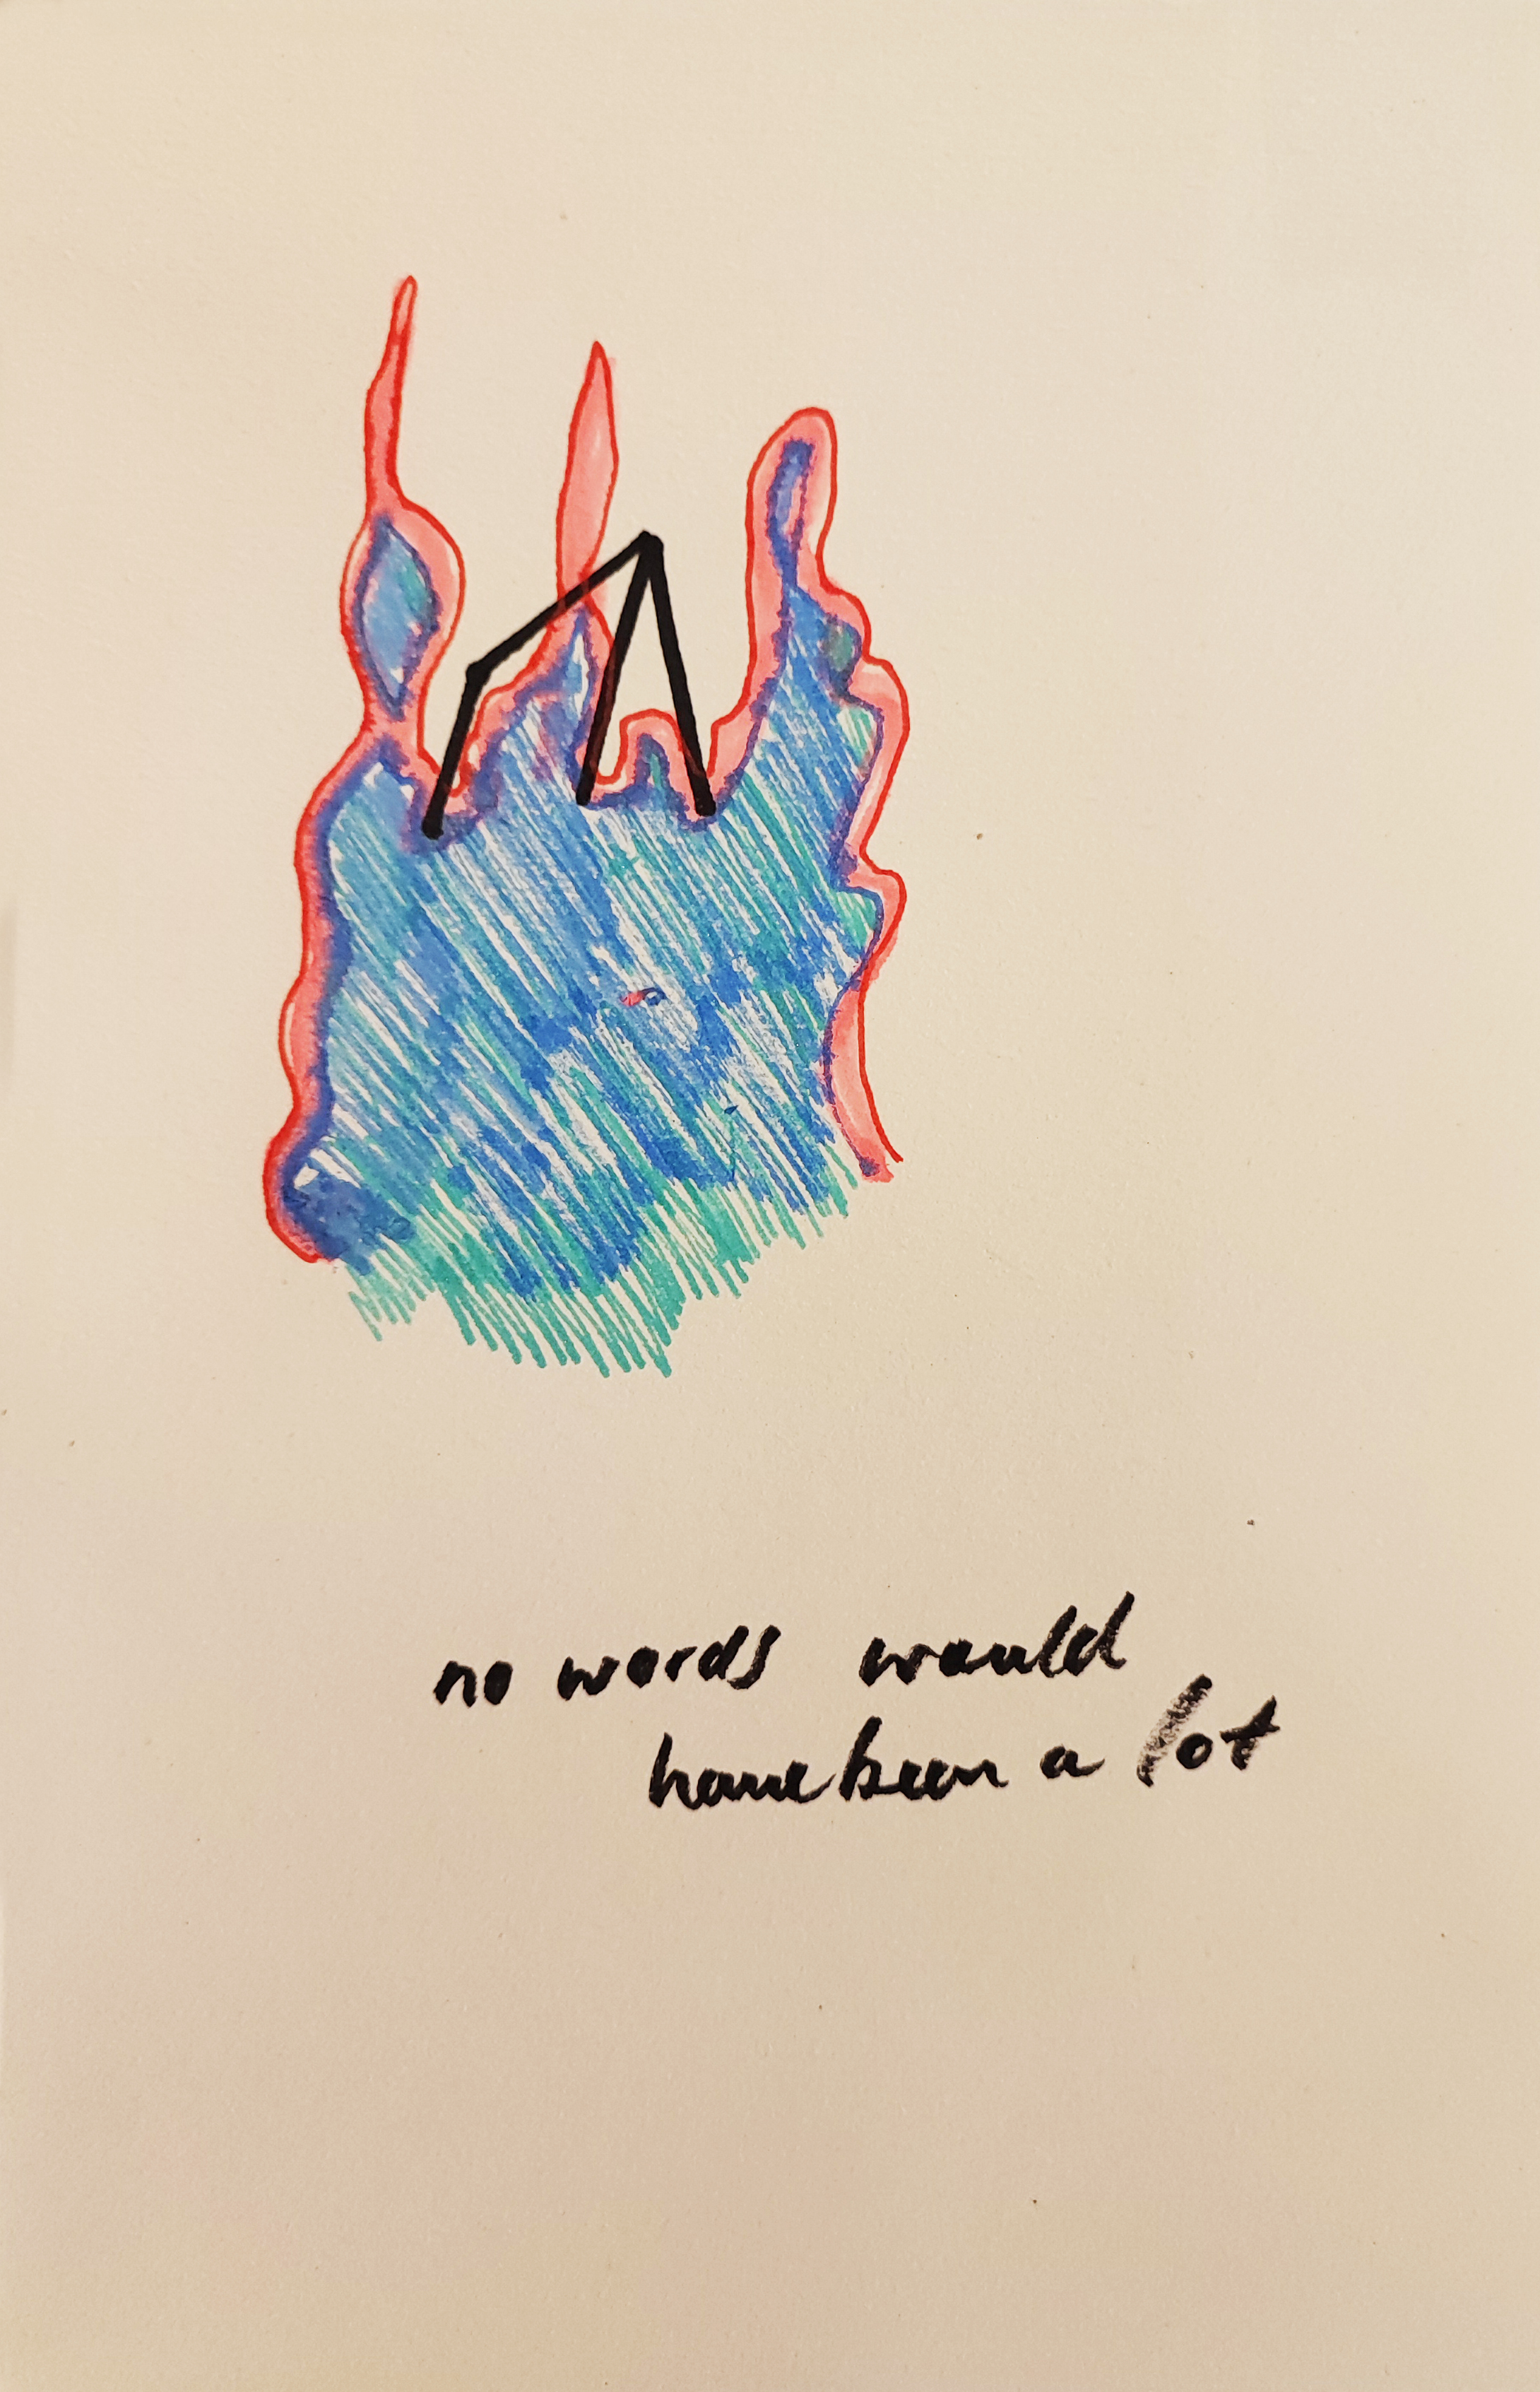 no words would
have been a lot